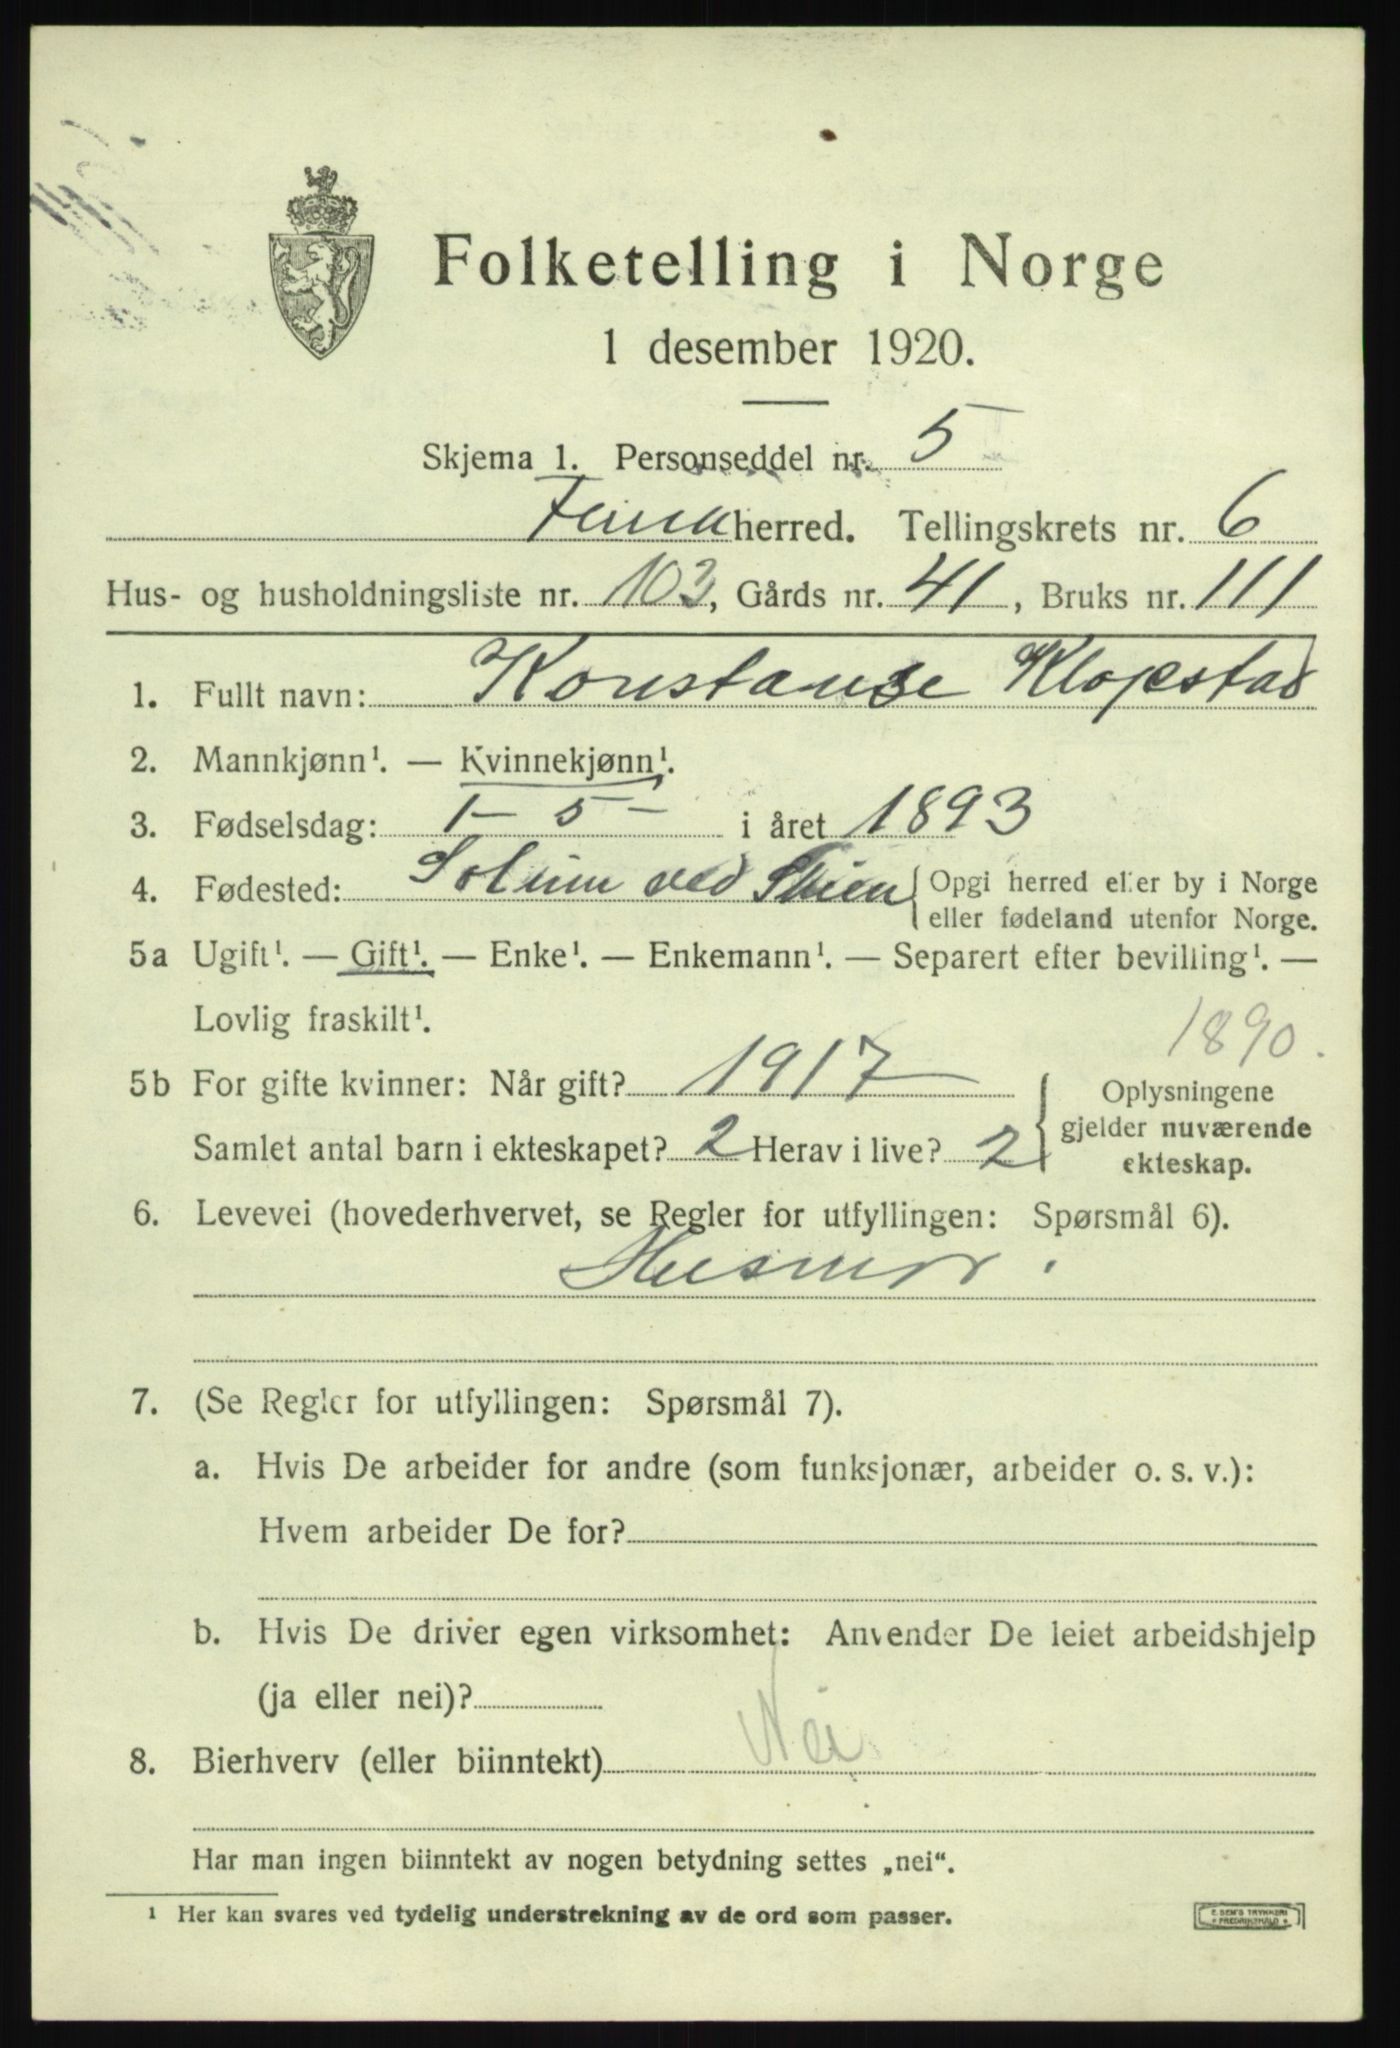 Folketelling i Norge
1 desember 1920.
Skjema 1. Personseddel nr. 5
herred. Tellingskrets nr. 6
Hus- og husholdningsliste nr. 103, Gårds nr. 41, Bruks nr. 111
1. Fullt navn: Konstanse Klopstad
2. Mannkjønn¹. — Kvinnekjønn¹.
3. Fødselsdag: 1 - 5 - i året 1893
4. Fødested: Solum ved Skien { Opgi herred eller by i Norge
eller fødeland utenfor Norge.
5a Ugift¹. — Gift¹. — Enke¹. — Enkemann¹. — Separert efter bevilling¹. —
Lovlig fraskilt¹.
1890.
5b For gifte kvinner: Når gift? 1917
Samlet antal barn i ekteskapet? 2 Herav i live? 2
Oplysningene
gjelder nuværende
ekteskap.
6. Levevei (hovederhvervet, se Regler for utfyllingen: Spørsmål 6).
Husmor.
7. (Se Regler for utfyllingen: Spørsmål 7).
a. Hvis De arbeider for andre (som funksjonær, arbeider o. s. v.):
Hvem arbeider De for?
b. Hvis De driver egen virksomhet: Anvender De leiet arbeidshjelp
(ja eller nei)?
8. Bierhverv (eller biinntekt) Nei
Har man ingen biinntekt av nogen betydning settes „nei“.
¹ Her kan svares ved tydelig understrekning av de ord som passer.
E. SEM'S TRYKKERI
FREDRIKSHALD